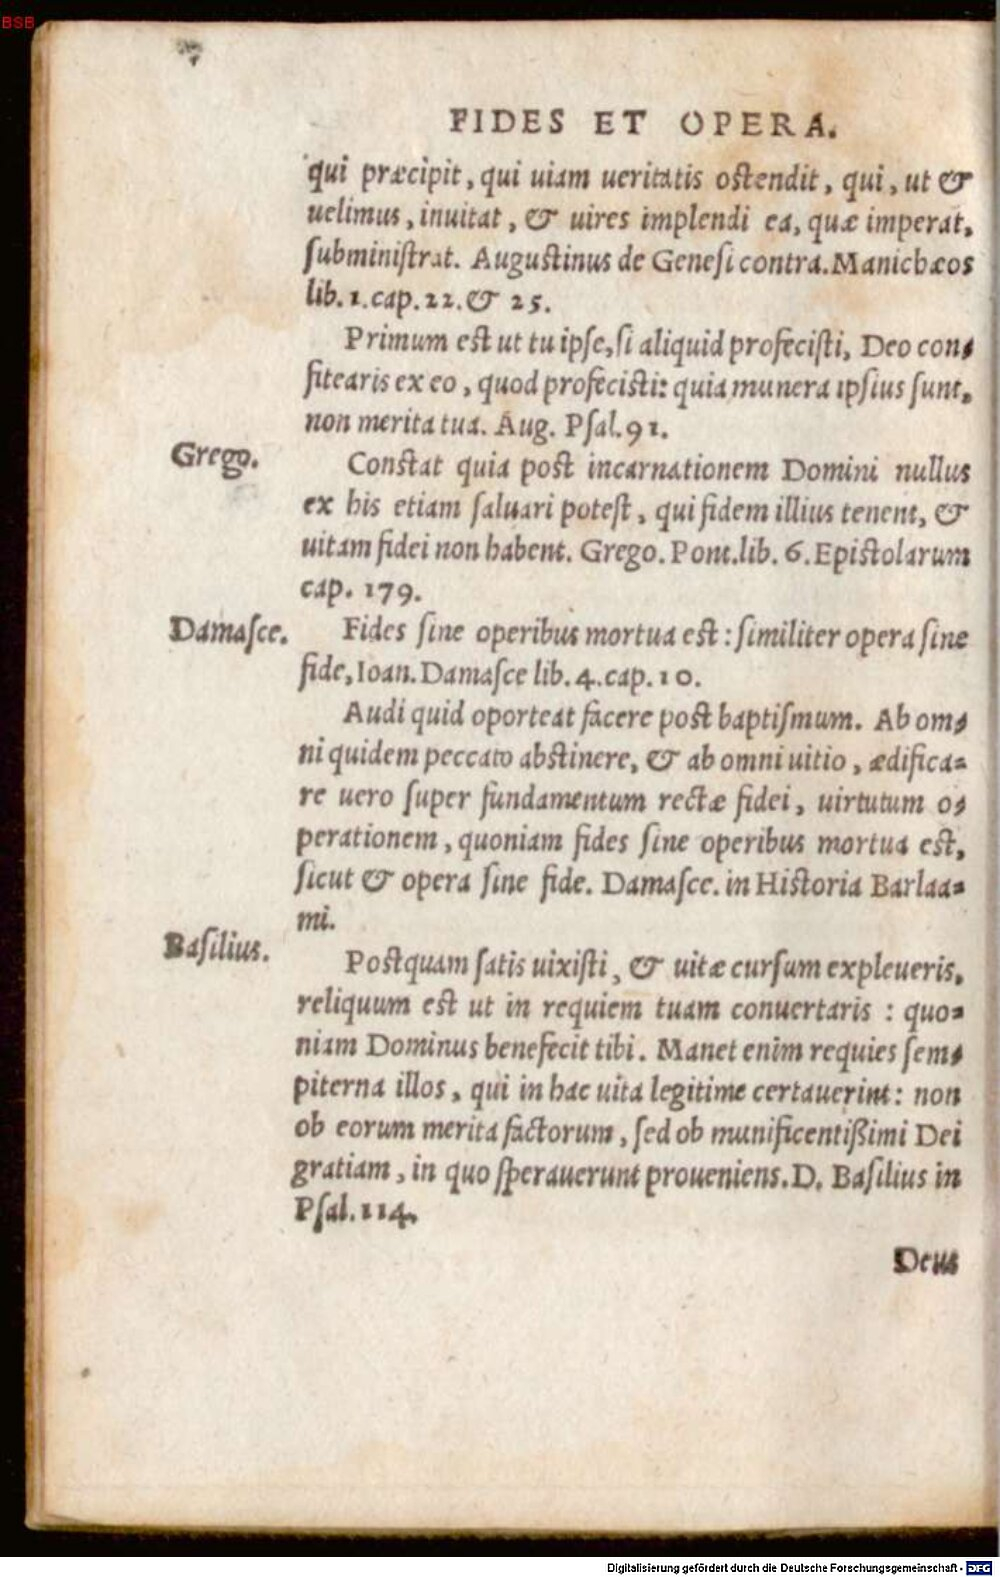 BSB
FIDES ET OPERA.
qui præcipit, qui uiam ueritatis ostendit, qui, ut &
uelimus, inuitat, & uires implendi ea, quæ imperat,
ſubminiſtrat. Augustinus de Geneſi contra. Manichæos
lib. 1. cap. 22. & 25.
Primum est ut tu ipſe, ſi aliquid profeciſti, Deo con-
fitearis ex eo, quod profecisti: quia munera ipſius ſunt,
non merita tua. Aug. Pſal. 91.
Grego.
Constat quia post incarnationem Domini nullus
ex his etiam ſaluari poteſt, qui fidem illius tenent, &
uitam fidei non habent. Grego. Pont. lib. 6. Epistolarum
cap. 179.
Damaſce.
Fides ſine operibus mortua est: ſimiliter opera ſine
fide, Ioan. Damaſce lib. 4. cap. 10.
Audi quid oporteat facere post baptiſmum. Ab om-
ni quidem peccato abstinere, & ab omni uitio, ædifica-
re uero ſuper fundamentum rectæ fidei, uirtutum o-
perationem, quoniam fides ſine operibus mortua est,
ſicut & opera ſine fide. Damaſce. in Historia Barlaa-
mi.
Baſilius.
Postquam ſatis uixiſti, & uitæ curſum expleueris,
reliquum est ut in requiem tuam conuertaris: quo-
niam Dominus benefecit tibi. Manet enim requies ſem-
piterna illos, qui in hac uita legitime certauerint: non
ob eorum merita factorum, ſed ob munificentißimi Dei
gratiam, in quo ſperauerunt proueniens. D. Baſilius in
Pſal. 114.
Deus
Digitalisierung gefördert durch die Deutsche Forschungsgemeinschaft - DFG